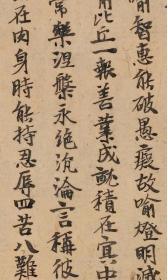 喻智惠能破愚癡故喻燈明
用此丘一報善業成就積在宜中
常樂涅槃永絕沉淪一言稱彼
在肉身時能持忍辱四苦八難